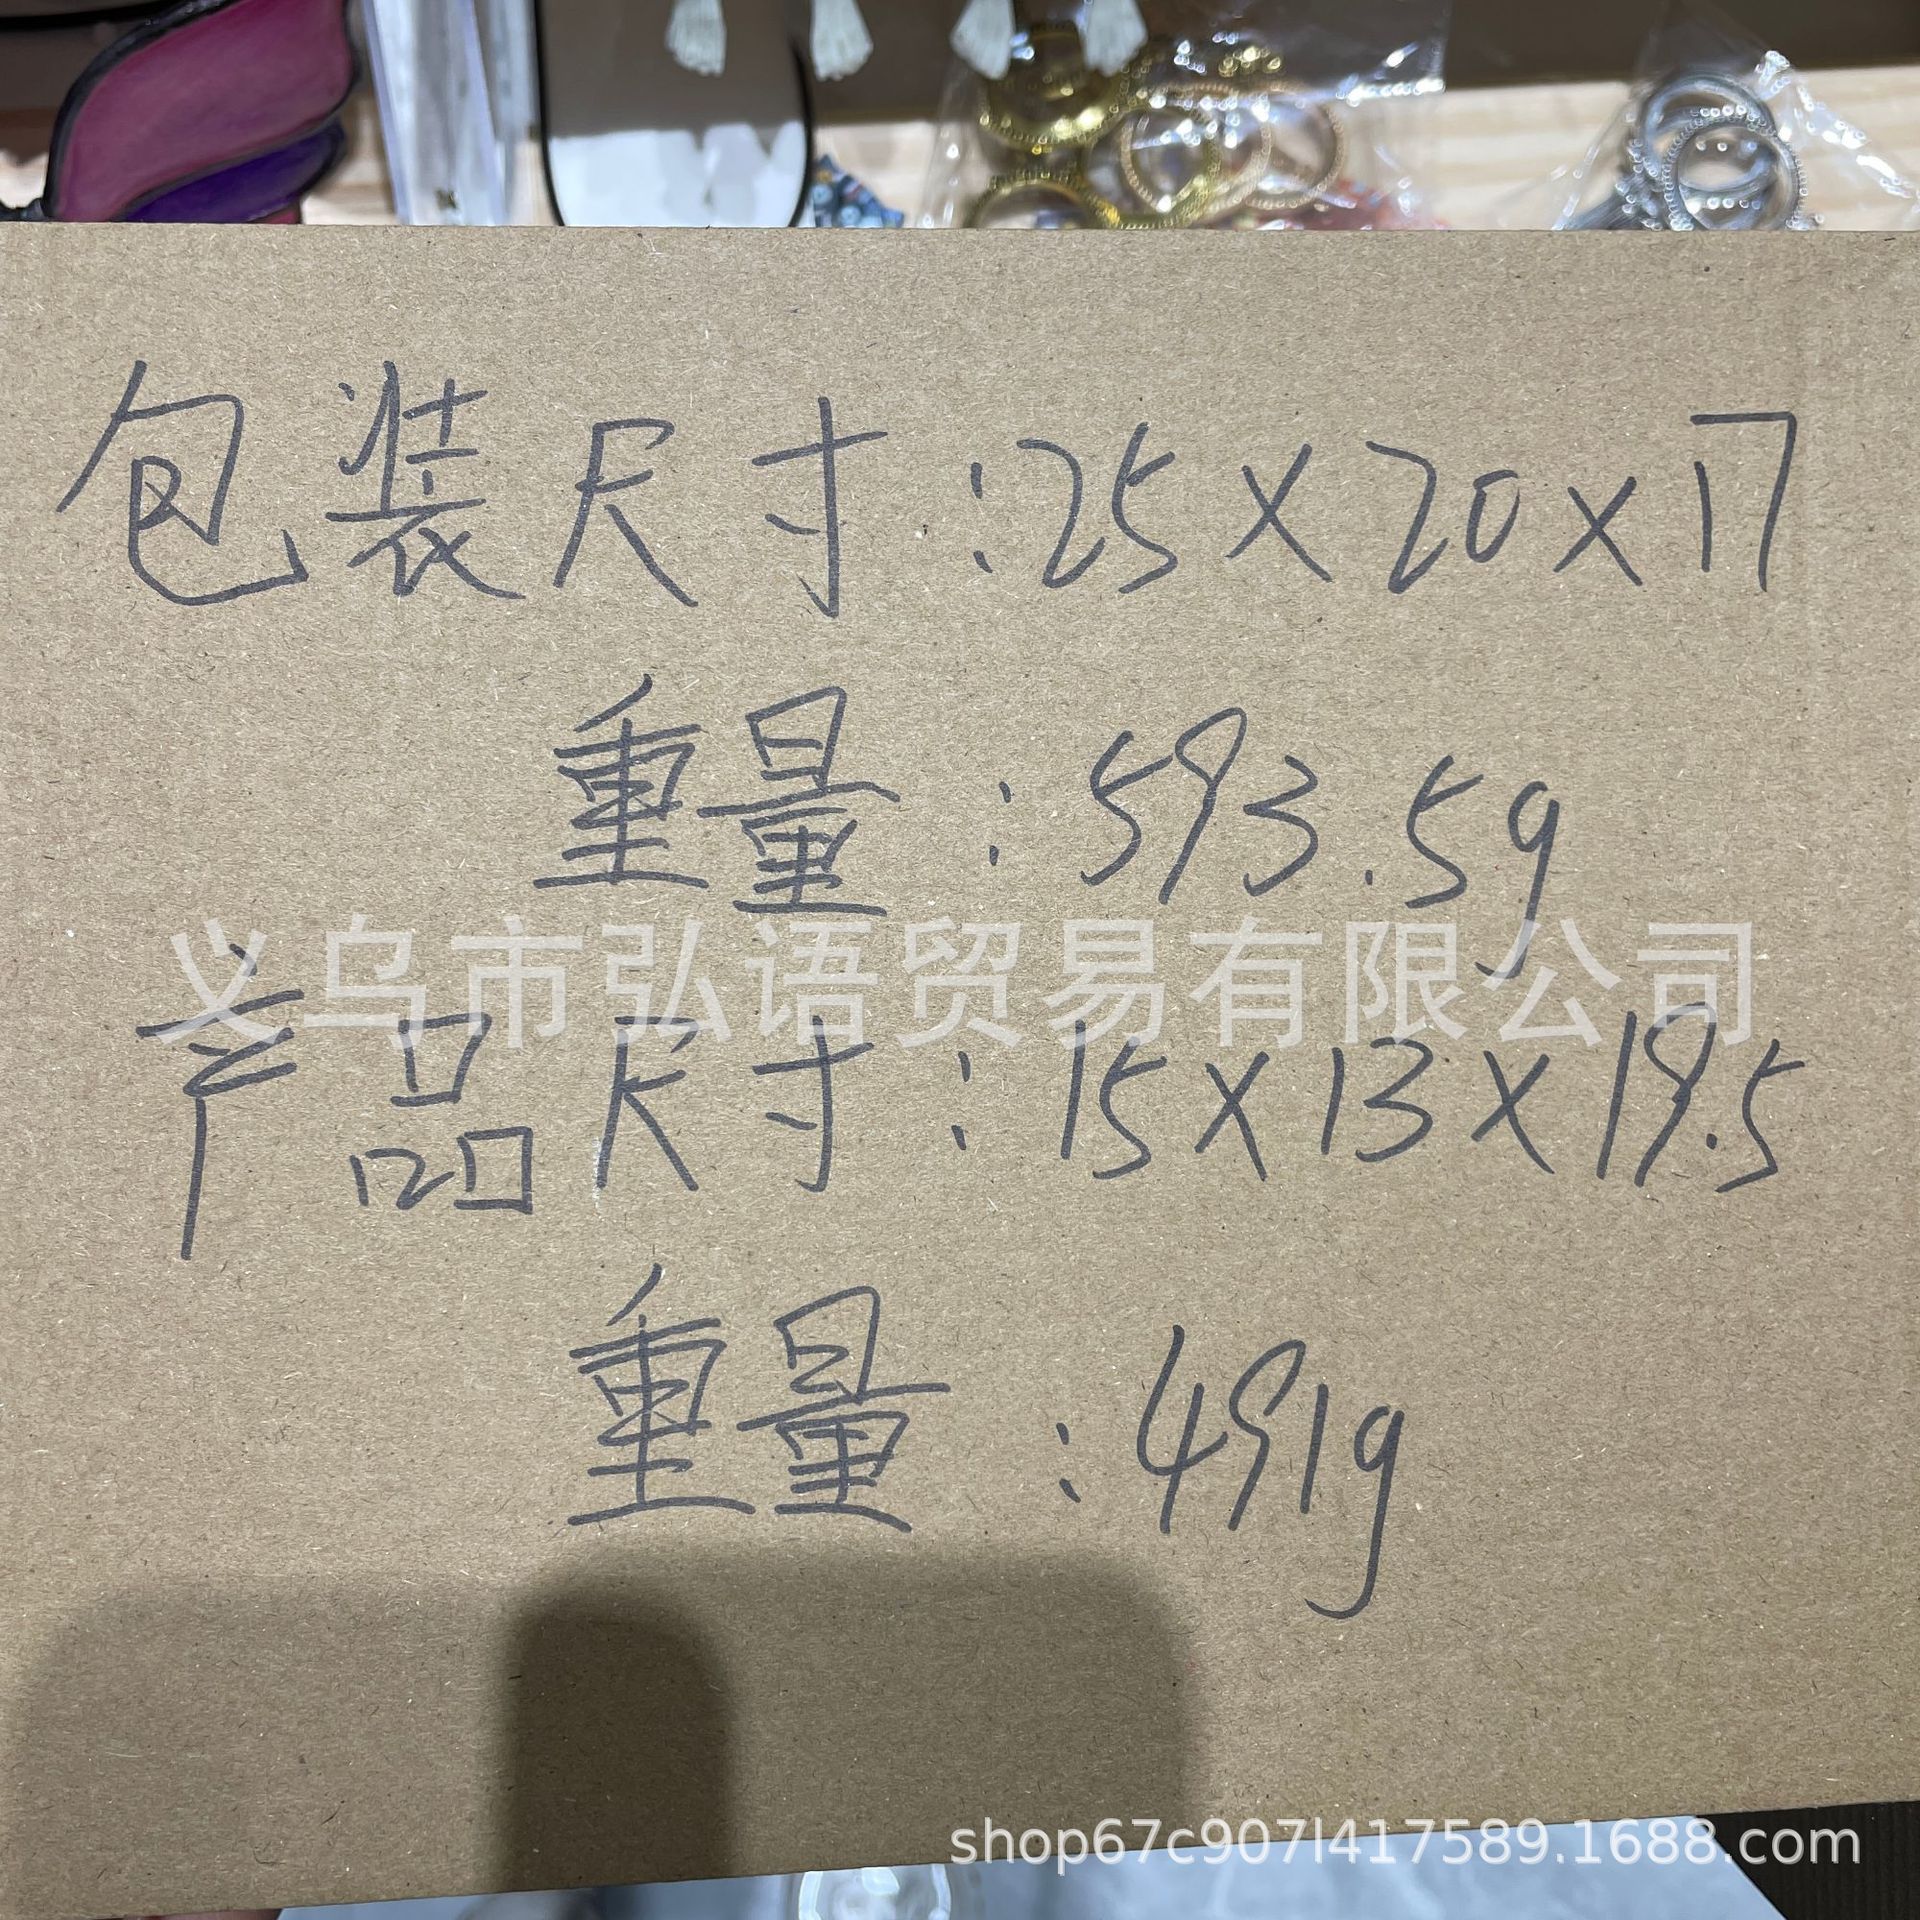 包装尺寸:25X20X17
重量:593.5g
义乌市弘语贸易有限公司
产品尺寸:15X13X19.5
重量:491g
shop67c907l417589.1688.com